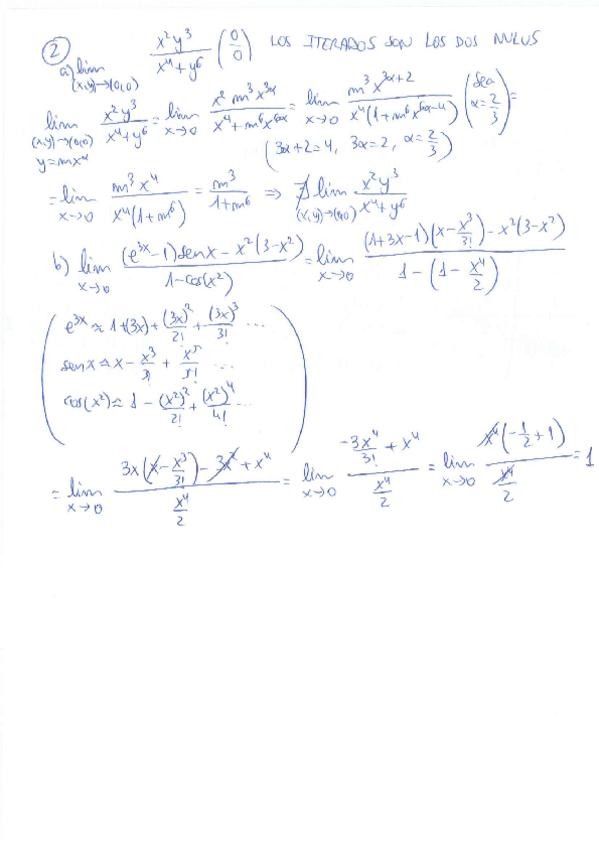 ② a) lim (x,y)→(0,0) x²y³/(x⁴+y⁶) (0/0) LOS ITERADOS SON LOS DOS NULOS
lim (x,y)→(0,0) y=mx^α x²y³/(x⁴+y⁶) = lim x→0 x² m³x^(3α)/(x⁴+m⁶x^(6α)) = lim x→0 m³x^(3α+2)/(x⁴(1+m⁶x^(6α-4))) (sea α=2/3) =
(3α+2=4, 3α=2, α=2/3)
= lim x→0 m³x⁴/(x⁴(1+m⁶)) = m³/(1+m⁶) ⇒ ∄ lim (x,y)→(0,0) x²y³/(x⁴+y⁶)
b) lim x→0 ((e^(3x)-1)senx - x²(3-x²))/(1-cos(x²)) = lim x→0 ((1+3x-1)(x-x³/3!) - x²(3-x²))/(1-(1-x⁴/2))
(e^(3x) ≈ 1+(3x)+(3x)²/2!+(3x)³/3! ...
senx ≈ x - x³/3! + x⁵/5! ...
cos(x²) ≈ 1 - (x²)²/2! + (x²)⁴/4! ...)
= lim x→0 (3x(x-x³/3!) - 3x² + x⁴)/(x⁴/2) = lim x→0 (-3x⁴/3! + x⁴)/(x⁴/2) = lim x→0 x⁴(-1/2+1)/(x⁴/2) = 1